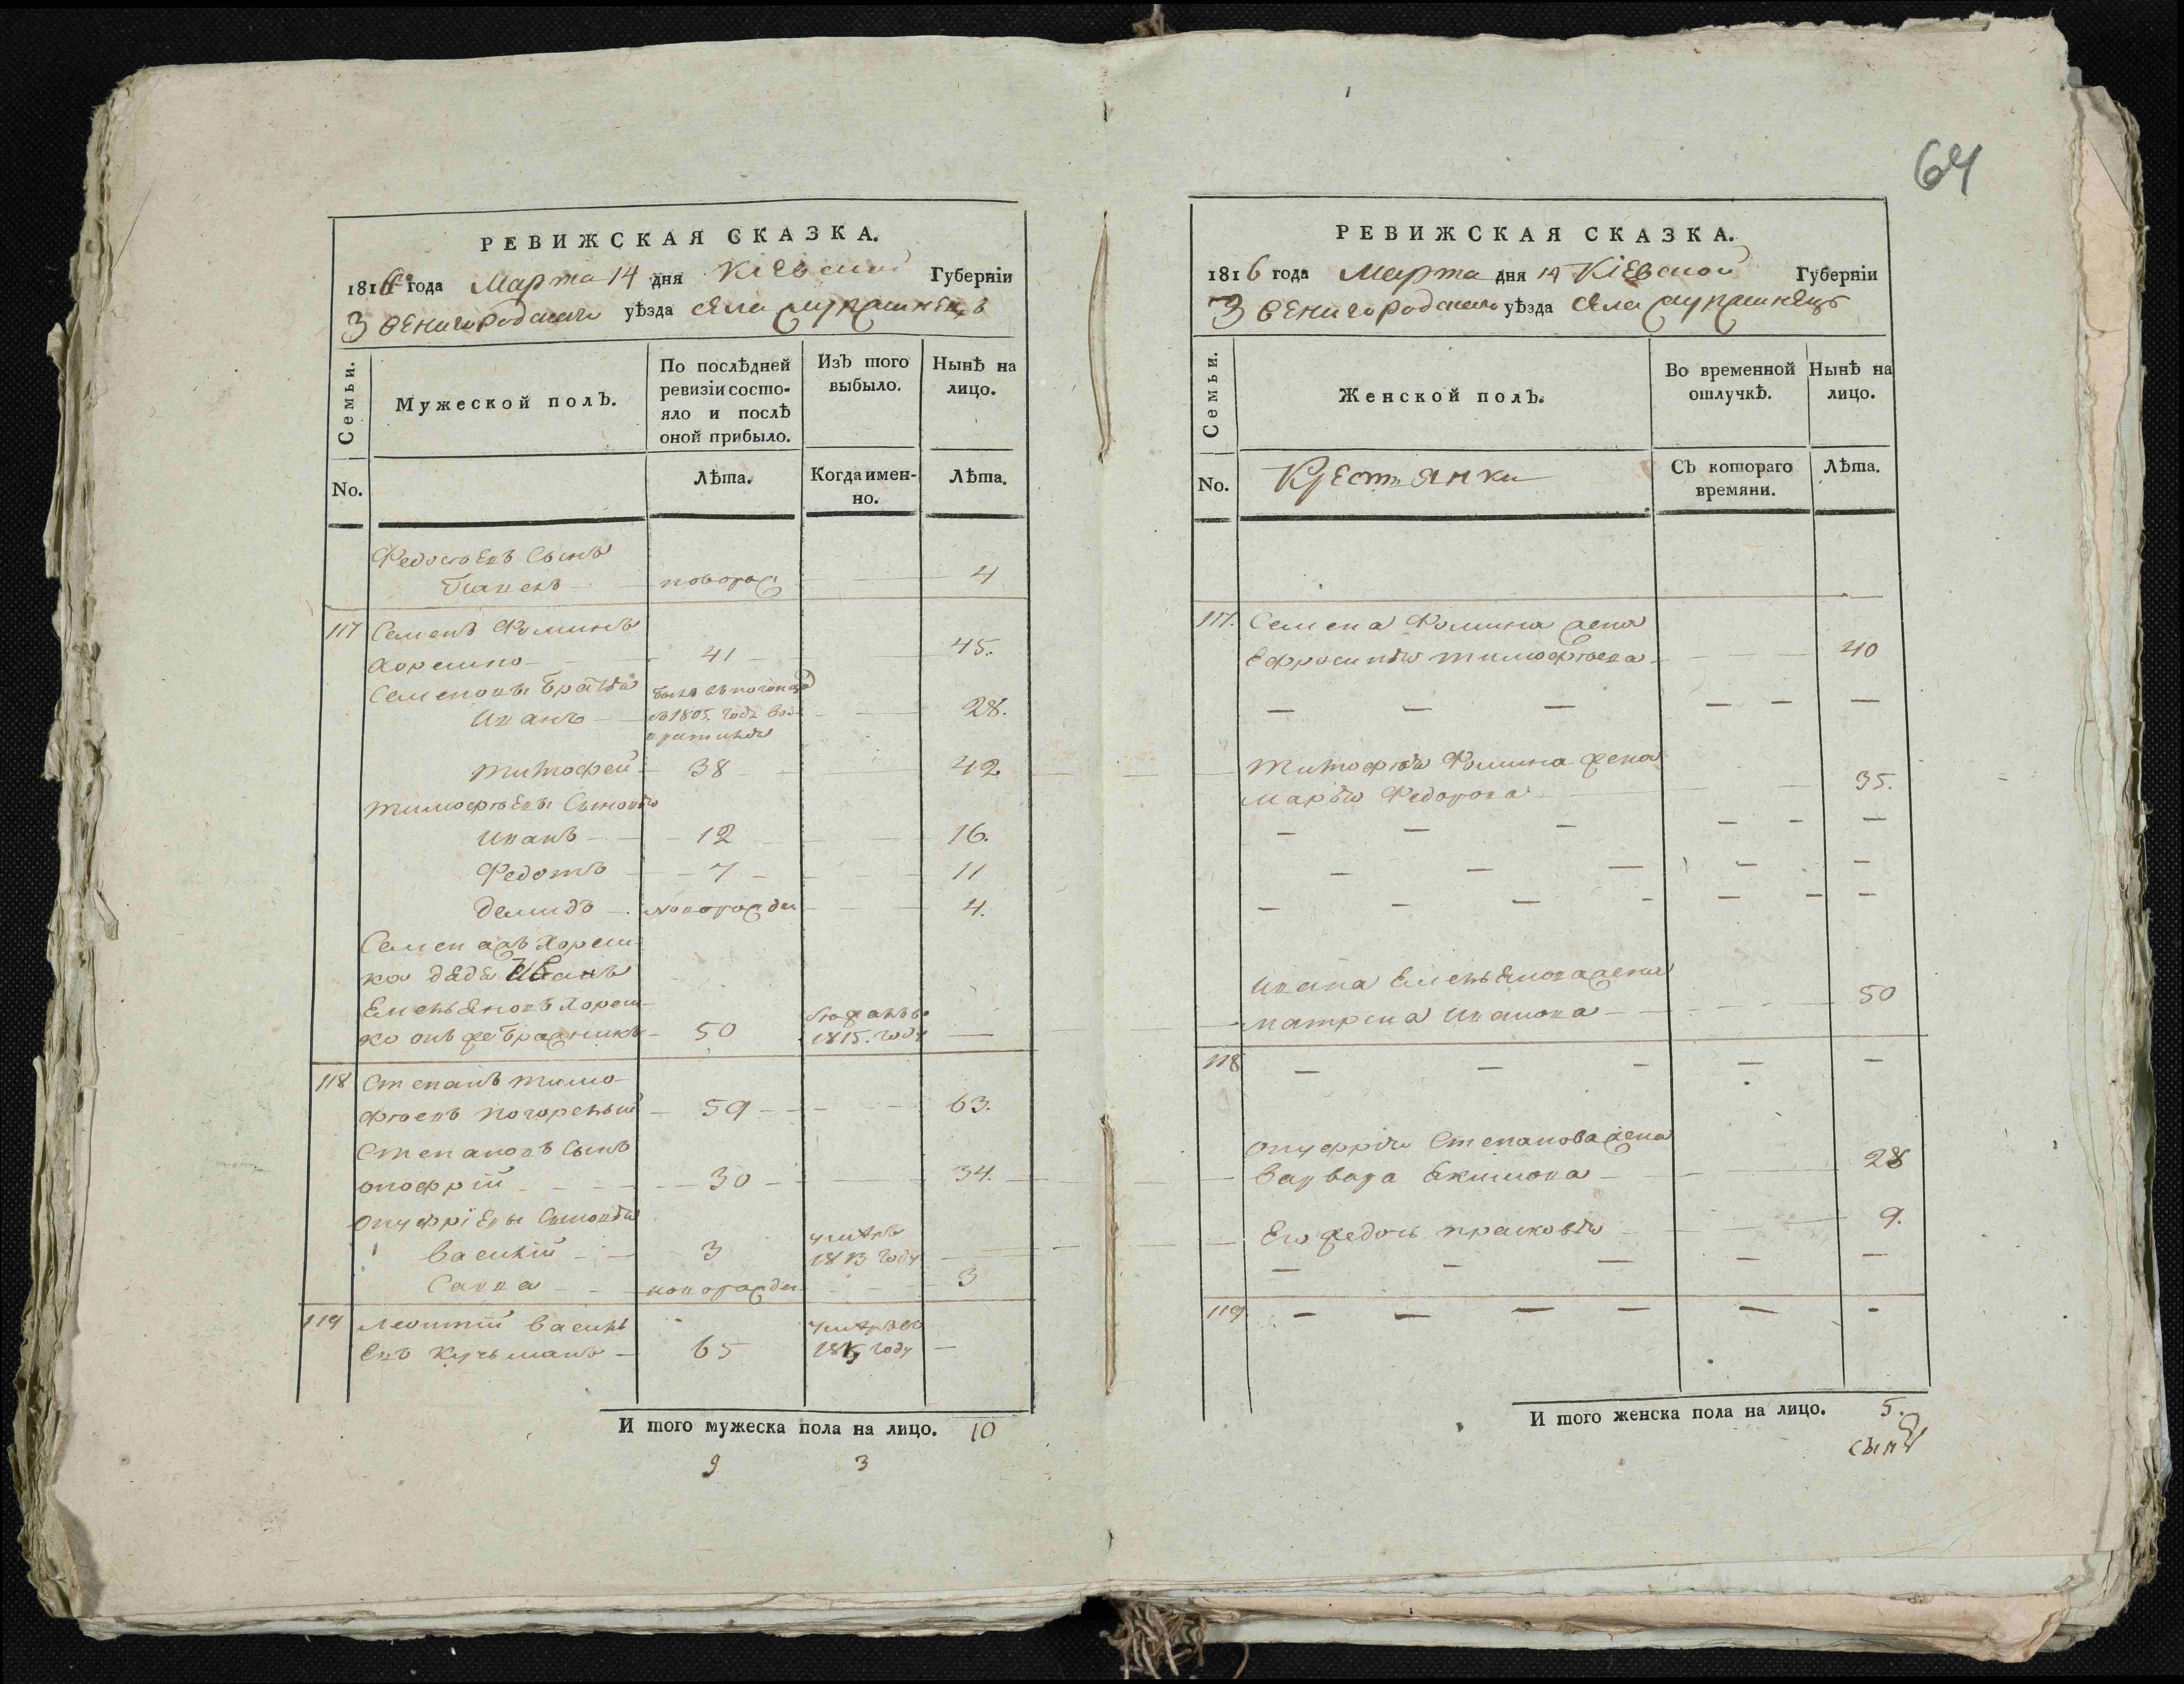 64
РЕВИЖСКАЯ СКАЗКА.
1816 года Марта 14 дня Кіевской Губерніи
Звенигородского уѣзда села
Семьи.
Мужеской полЪ.
По послѣдней ревизіи состояло и послѣ оной прибыло.
ИзЪ того выбыло.
НынѢ на лицо.
No.
Лѣта.
Когда именно.
Лѣта.
Федосѣевъ Сынъ
новорож 4
117 Семенъ Фоминъ
Хорешко 41 45.
Семеновы Братья
Иванъ 1805. году воз- 28.
вратился
Тимофей 38 42
Тимофѣевы Сыновья
Иванъ 12 16.
Федотъ 7 11
Демидъ новорожден 4.
Семена Хореш-
ка дядя Иванъ
Емельяновъ Хореш-
ко онъ же Бражникъ 50 1815. году
118 Степанъ Тимо-
фѣевъ Погорелый 59 63.
Степановъ Сынъ
Онофрій 30 34.
Онуфріевы Сыновья
Василій 3 умре 1813 году
Савва новорожден 3
119 Леонтій Василь
евъ Кучьманъ 65 умре въ 1815 году
И того мужеска пола на лицо. 10
9 3
РЕВИЖСКАЯ СКАЗКА.
1816 года Марта дня 14 Кіевской Губерніи
Звенигородского уѣзда села
Семьи.
Женской полЪ.
Во временной отлучкѢ.
НынѢ на лицо.
No.
Крестянки
СЪ котораго времяни.
Лѣта.
117. Семена Фомина жена
Ефросинья Тимофѣева 40
Тимофѣя Фомина жена
Марья Федорова 35.
Ивана Емельянова жена
Матрена Иванова 50
118
Онуфрія Степанова жена
Варвара Екимова 28
Его ж дочь Прасковья 9.
119
И того женска пола на лицо. 5.
сынъ